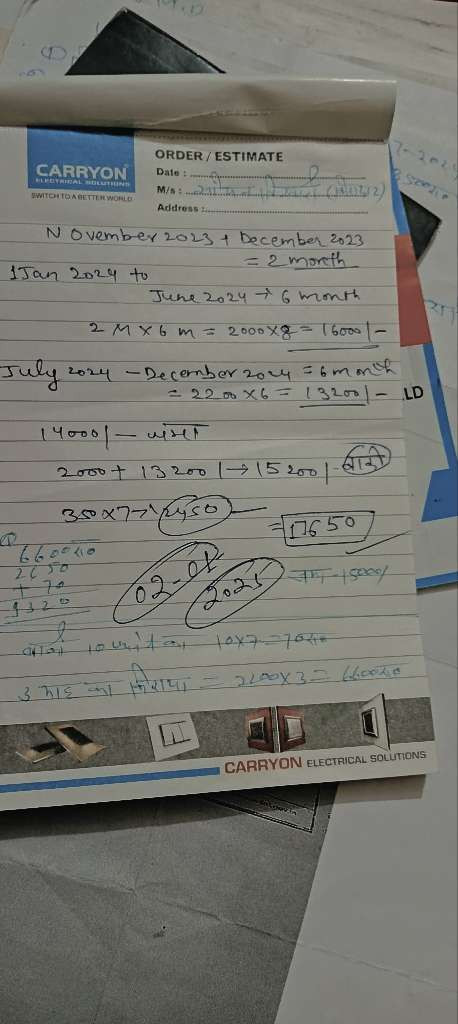 CARRYON
ELECTRICAL SOLUTIONS
SWITCH TO A BETTER WORLD
ORDER / ESTIMATE
Date :
M/s :
Address :
November 2023 + December 2023
= 2 month
1 Jan 2024 to
June 2024 → 6 month
2 M × 6 m = 2000 × 8 = 16000/-
July 2024 - December 2024 = 6 month
= 2200 × 6 = 13200/-
LD
14000/- जमा
2000 + 13200/→ 15200/- बाकी
350×7→ 2450
= 17650
6600
2650
+ 70
9320
02-01
2025
जमा - 15000/
बाकी 10 का 10×7=70
3 माह का किराया = 2200×3 = 6600
CARRYON ELECTRICAL SOLUTIONS